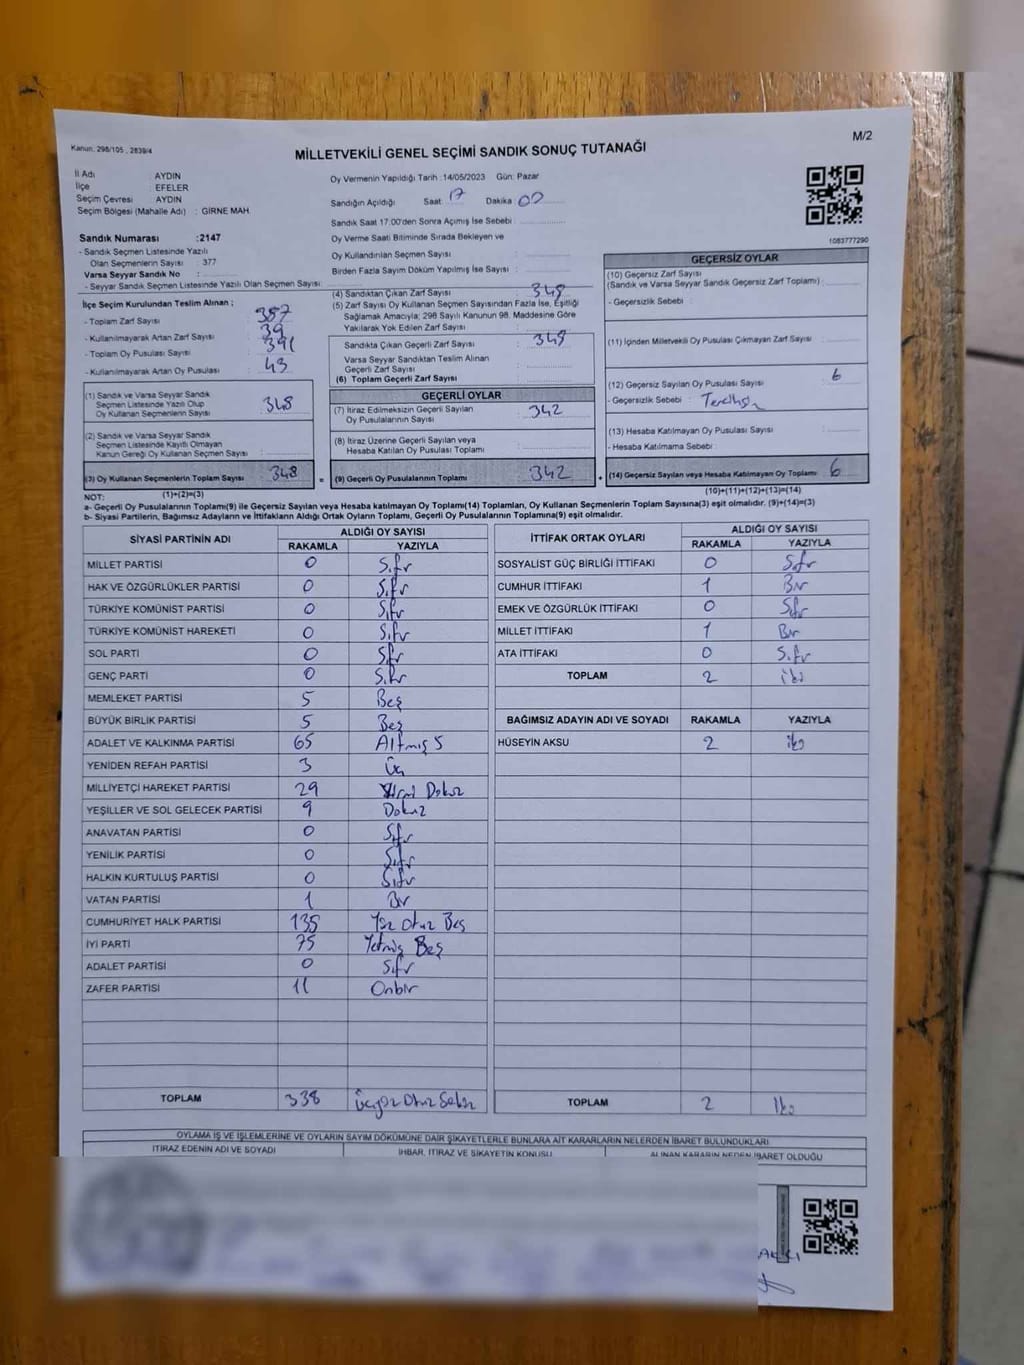 M/2
Kanun: 298/105 , 2839/4
MİLLETVEKİLİ GENEL SEÇİMİ SANDIK SONUÇ TUTANAĞI
İl Adı AYDIN
İlçe : EFELER
Seçim Çevresi AYDIN
Seçim Bölgesi (Mahalle Adı) : GİRNE MAH
Sandık Numarası :2147
- Sandık Seçmen Listesinde Yazılı
Olan Seçmenlerin Sayısı : 377
Varsa Seyyar Sandık No :
- Seyyar Sandık Seçmen Listesinde Yazılı Olan Seçmen Sayısı :
İlçe Seçim Kurulundan Teslim Alınan ;
- Toplam Zarf Sayısı : 387
- Kullanılmayarak Artan Zarf Sayısı : 39
- Toplam Oy Pusulası Sayısı : 391
- Kullanılmayarak Artan Oy Pusulası : 43
(1) Sandık ve Varsa Seyyar Sandık
Seçmen Listesinde Yazılı Olup
Oy Kullanan Seçmenlerin Sayısı : 348
(2) Sandık ve Varsa Seyyar Sandık
Seçmen Listesinde Kayıtlı Olmayan
Kanun Gereği Oy Kullanan Seçmen Sayısı :
(3) Oy Kullanan Seçmenlerin Toplam Sayısı : 348
(1)+(2)=(3)
Oy Vermenin Yapıldığı Tarih :14/05/2023 Gün: Pazar
Sandığın Açıldığı Saat : 17 Dakika : 00
Sandık Saat 17:00'den Sonra Açımış İse Sebebi :
Oy Verme Saati Bitiminde Sırada Bekleyen ve
Oy Kullandırılan Seçmen Sayısı :
Birden Fazla Sayım Döküm Yapılmış İse Sayısı :
(4) Sandıktan Çıkan Zarf Sayısı : 348
(5) Zarf Sayısı Oy Kullanan Seçmen Sayısından Fazla İse, Eşitliği
Sağlamak Amacıyla; 298 Sayılı Kanunun 98. Maddesine Göre
Yakılarak Yok Edilen Zarf Sayısı :
Sandıkta Çıkan Geçerli Zarf Sayısı : 348
Varsa Seyyar Sandıktan Teslim Alınan
Geçerli Zarf Sayısı :
(6) Toplam Geçerli Zarf Sayısı :
GEÇERLİ OYLAR
(7) İtiraz Edilmeksizin Geçerli Sayılan
Oy Pusulalarının Sayısı : 342
(8) İtiraz Üzerine Geçerli Sayılan veya
Hesaba Katılan Oy Pusulası Toplamı :
= (9) Geçerli Oy Pusulalarının Toplamı : 342
1083777290
GEÇERSİZ OYLAR
(10) Geçersiz Zarf Sayısı
(Sandık ve Varsa Seyyar Sandık Geçersiz Zarf Toplamı) :
- Geçersizlik Sebebi :
(11) İçinden Milletvekili Oy Pusulası Çıkmayan Zarf Sayısı :
(12) Geçersiz Sayılan Oy Pusulası Sayısı : 6
- Geçersizlik Sebebi :
(13) Hesaba Katılmayan Oy Pusulası Sayısı :
- Hesaba Katılmama Sebebi :
+ (14) Geçersiz Sayılan veya Hesaba Katılmayan Oy Toplamı : 6
(10)+(11)+(12)+(13)=(14)
NOT:
a- Geçerli Oy Pusulasının Toplamı(9) ile Geçersiz Sayılan veya Hesaba Katılmayan Oy Toplamı(14) Toplamları, Oy Kullanan Seçmenlerin Toplam Sayısına(3) eşit olmalıdır. (9)+(14)=(3)
b- Siyasi Partilerin, Bağımsız Adayların ve İttifakların Aldığı Ortak Oyların Toplamı, Geçerli Oy Pusulalarının Toplamına(9) eşit olmalıdır.
SİYASİ PARTİNİN ADI ALDIĞI OY SAYISI
RAKAMLA YAZIYLA
MİLLET PARTİSİ 0 Sıfır
HAK VE ÖZGÜRLÜKLER PARTİSİ 0 Sıfır
TÜRKİYE KOMÜNİST PARTİSİ 0 Sıfır
TÜRKİYE KOMÜNİST HAREKETİ 0 Sıfır
SOL PARTİ 0 Sıfır
GENÇ PARTİ 0 Sıfır
MEMLEKET PARTİSİ 5 Beş
BÜYÜK BİRLİK PARTİSİ 5 Beş
ADALET VE KALKINMA PARTİSİ 65 Altmış 5
YENİDEN REFAH PARTİSİ 3 Üç
MİLLİYETÇİ HAREKET PARTİSİ 29 Yirmi Dokuz
YEŞİLLER VE SOL GELECEK PARTİSİ 9 Dokuz
ANAVATAN PARTİSİ 0 Sıfır
YENİLİK PARTİSİ 0 Sıfır
HALKIN KURTULUŞ PARTİSİ 0 Sıfır
VATAN PARTİSİ 1 Bir
CUMHURİYET HALK PARTİSİ 135 Yüz Otuz Beş
İYİ PARTİ 75 Yetmiş Beş
ADALET PARTİSİ 0 Sıfır
ZAFER PARTİSİ 11 Onbir
TOPLAM 338 Üçyüz Otuz Sekiz
İTTİFAK ORTAK OYLARI ALDIĞI OY SAYISI
RAKAMLA YAZIYLA
SOSYALİST GÜÇ BİRLİĞİ İTTİFAKI 0 Sıfır
CUMHUR İTTİFAKI 1 Bir
EMEK VE ÖZGÜRLÜK İTTİFAKI 0 Sıfır
MİLLET İTTİFAKI 1 Bir
ATA İTTİFAKI 0 Sıfır
TOPLAM 2 iki
BAĞIMSIZ ADAYIN ADI VE SOYADI RAKAMLA YAZIYLA
HÜSEYİN AKSU 2 iki
TOPLAM 2 İki
OYLAMA İŞ VE İŞLEMLERİNE VE OYLARIN SAYIM DÖKÜMÜNE DAİR ŞİKAYETLERLE BUNLARA AİT KARARLARIN NELERDEN İBARET BULUNDUKLARI
İTİRAZ EDENİN ADI VE SOYADI İHBAR, İTİRAZ VE ŞİKAYETİN KONUSU ALINAN KARARIN NEDEN İBARET OLDUĞU